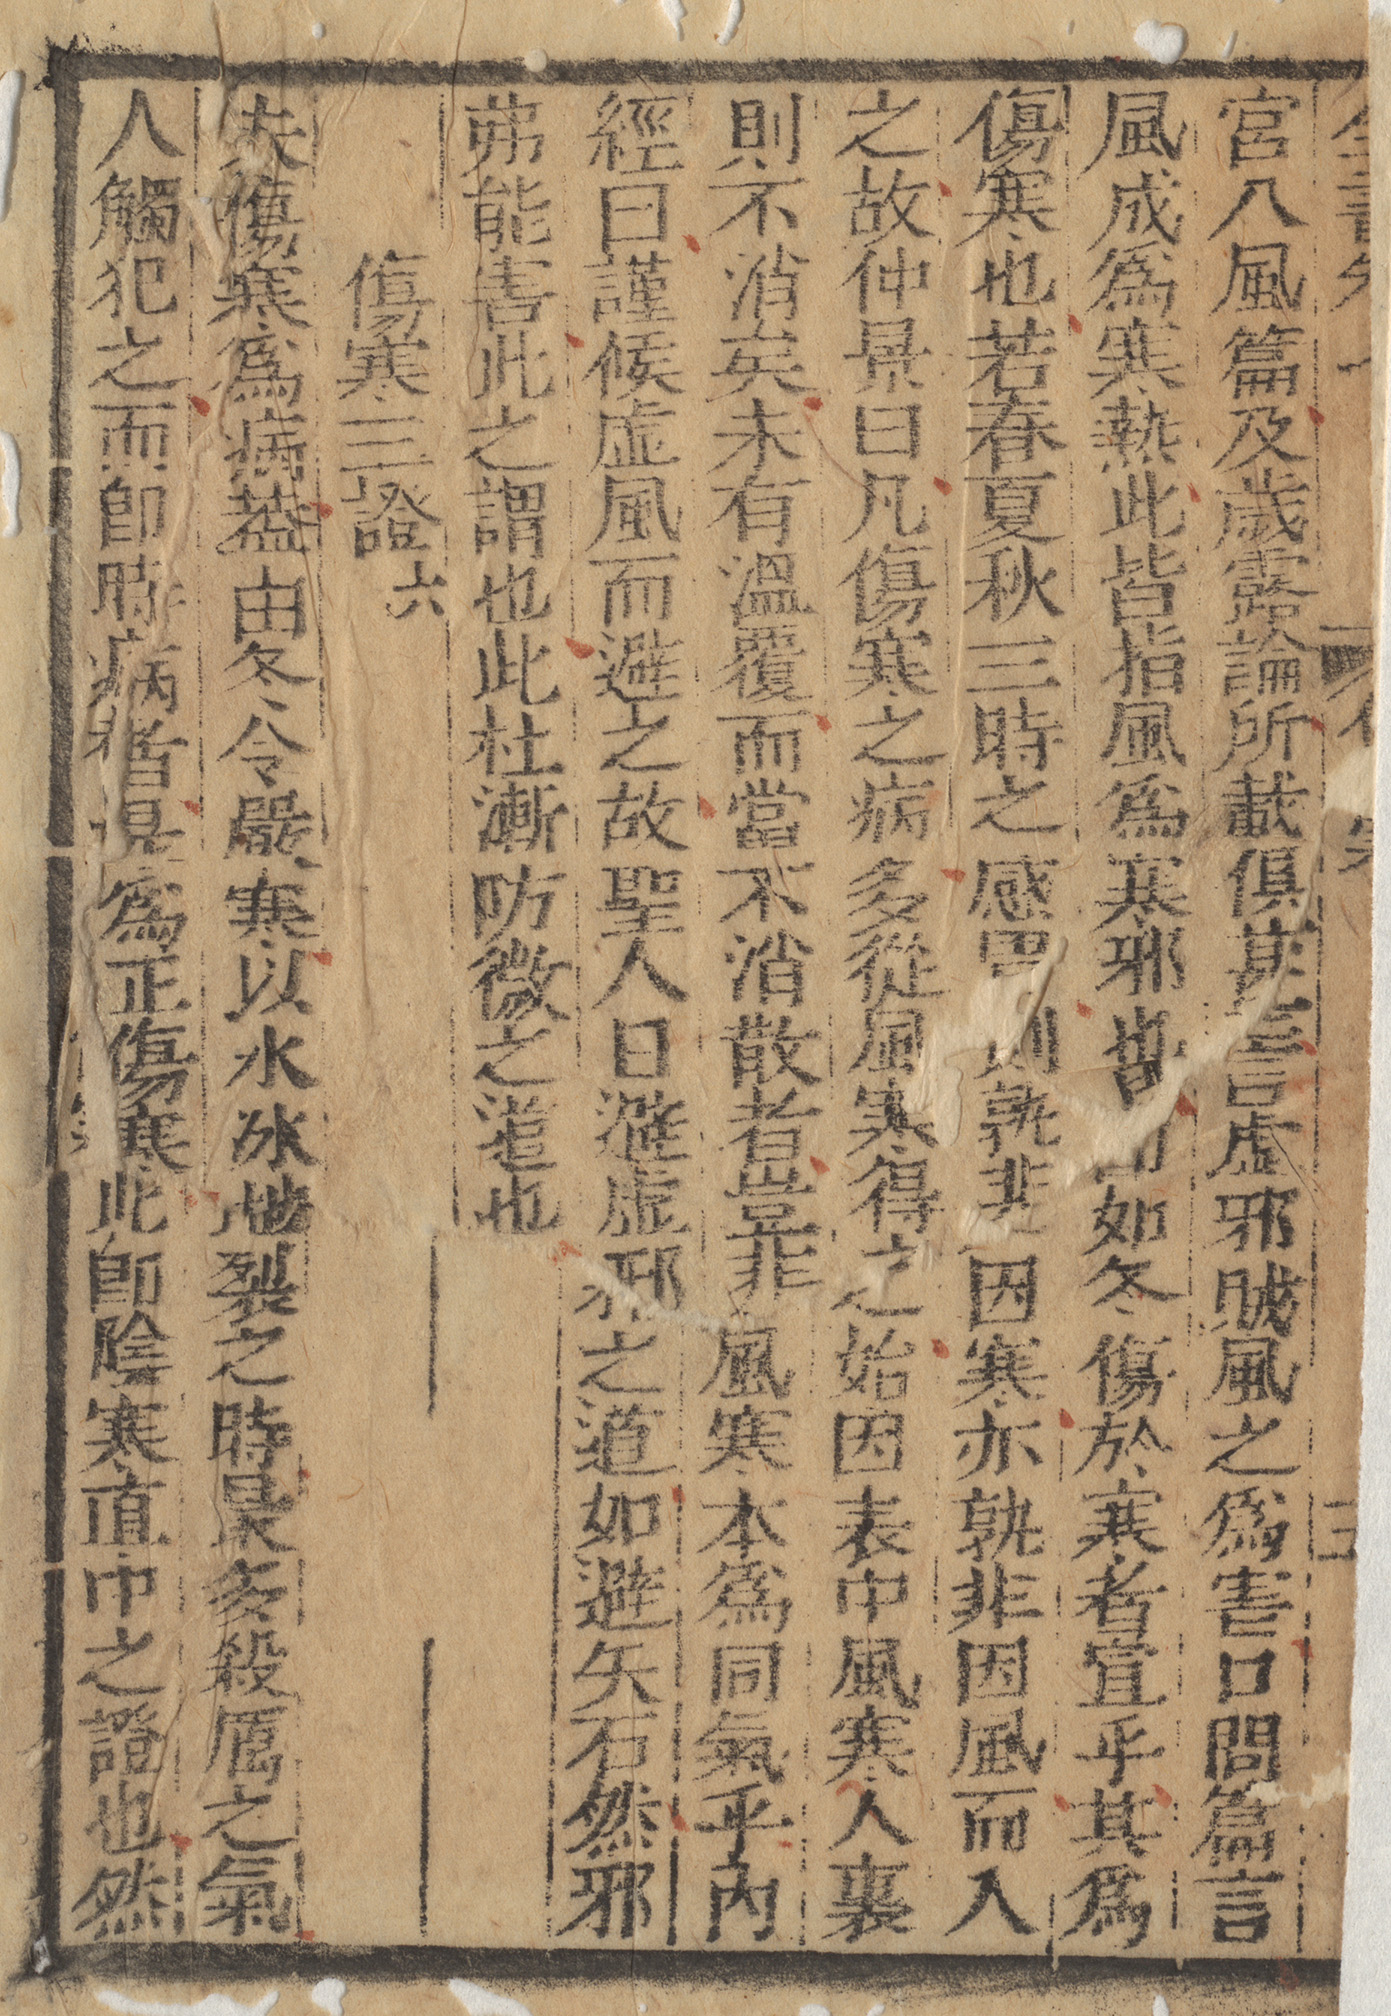 宮八風篇及歲露論所載俱甚言虛邪賊風之爲害口問篇言
風成爲寒熱此皆指風爲寒邪也卽如冬傷於寒者宜乎其爲
傷寒也若春夏秋三時之感冒則孰非因寒亦孰非因風而入
之故仲景曰凡傷寒之病多從風寒得之始因表中風寒入裏
則不消矣未有溫覆而當不消散者豈非風寒本爲同氣乎內
經曰謹候虛風而避之故聖人日避虛邪之道如避矢石然邪
弗能害此之謂也此杜漸防微之道也
傷寒三證 六
夫傷寒爲病蓋由冬令嚴寒以水冰地裂之時最多殺厲之氣
人觸犯之而卽時病者是爲正傷寒此卽陰寒直中之證也然